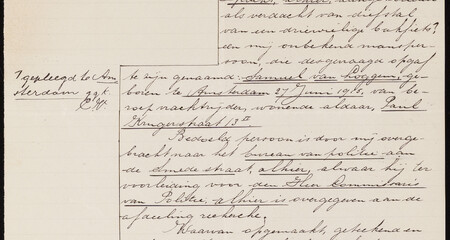 als verdacht van diefstal
van een driewielige bakfiets?
den mij onbekend mansper-
soon, die desgevraagd opgaf
te zijn genaamd: Samuel van Loggem, ge-
boren te Amsterdam 27 Juni 1915. van be-
roep vrachtrijder, wonende aldaar, Paul
Krugerstraat 13 II
Bedoelde persoon is door mij overge-
bracht naar het bureau van politie aan
de Smedestraat, alhier, alwaar hij ter
voorleiding voor den Heer Commissaris
van Politie, alhier is overgegeven aan de
afdeeling recherche.
Waarvan opgemaakt, geteekend en
? gepleegd te Am-
sterdam